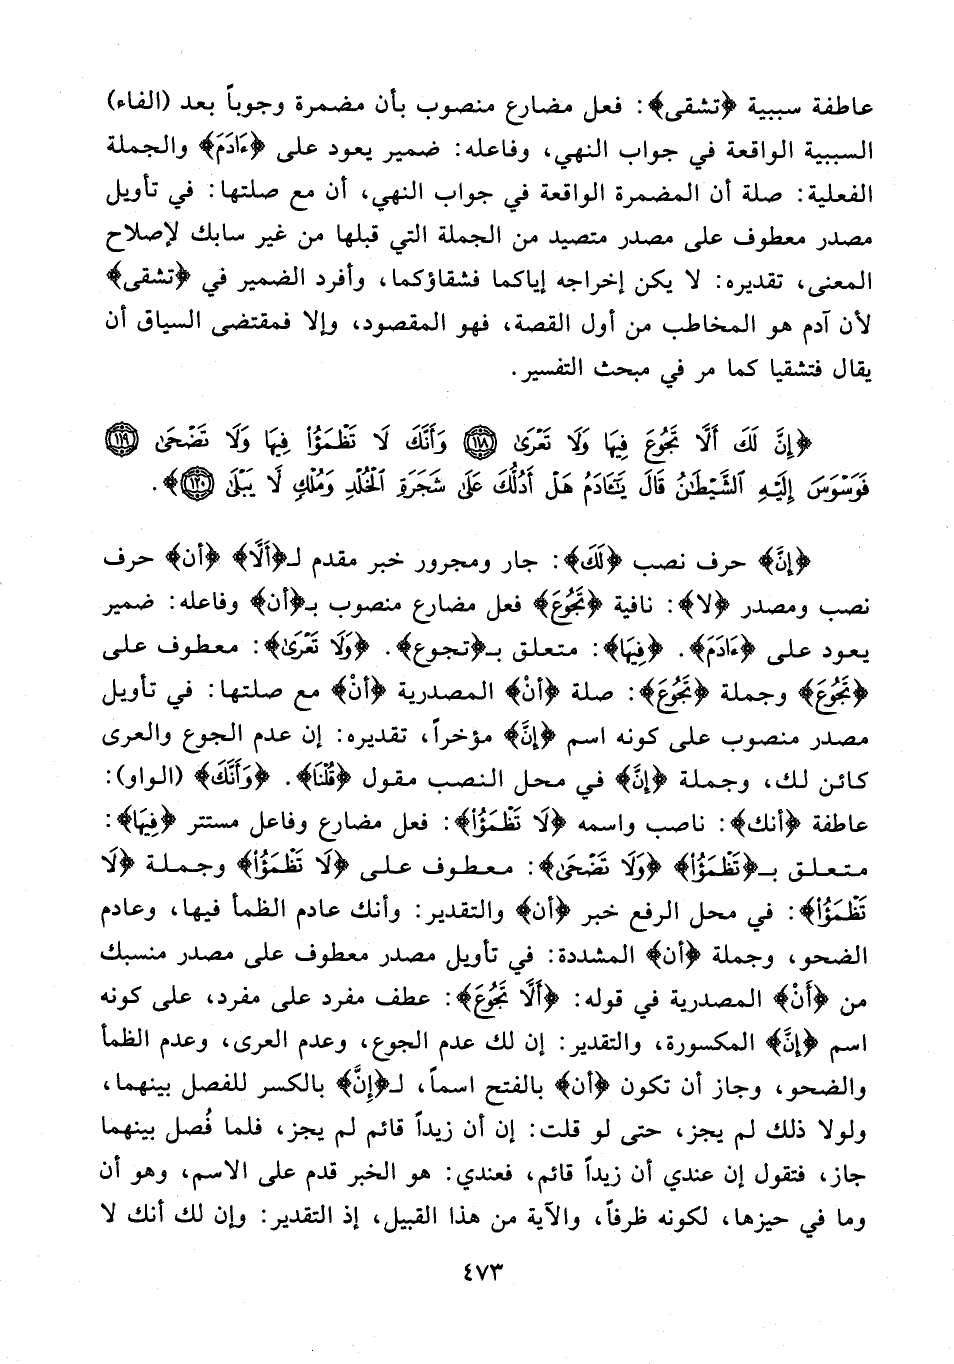 عاطفة سببية ﴿تشقى﴾: فعل مضارع منصوب بأن مضمرة وجوباً بعد (الفاء)
السببية الواقعة في جواب النهي، وفاعله: ضمير يعود على ﴿ءَادَمَ﴾ والجملة
الفعلية: صلة أن المضمرة الواقعة في جواب النهي، أن مع صلتها: في تأويل
مصدر معطوف على مصدر متصيد من الجملة التي قبلها من غير سابك لإصلاح
المعنى، تقديره: لا يكن إخراجه إياكما فشقاؤكما، وأفرد الضمير في ﴿تشقى﴾
لأن آدم هو المخاطب من أول القصة، فهو المقصود، وإلا فمقتضى السياق أن
يقال فتشقيا كما مر في مبحث التفسير.
﴿إِنَّ لَكَ أَلَّا تَجُوعَ فِيهَا وَلَا تَعْرَىٰ ١١٨ وَأَنَّكَ لَا تَظْمَؤُا۟ فِيهَا وَلَا تَضْحَىٰ ١١٩
فَوَسْوَسَ إِلَيْهِ ٱلشَّيْطَٰنُ قَالَ يَٰٓـَٔادَمُ هَلْ أَدُلُّكَ عَلَىٰ شَجَرَةِ ٱلْخُلْدِ وَمُلْكٍ لَّا يَبْلَىٰ ١٢٠﴾.
﴿إِنَّ﴾ حرف نصب ﴿لَكَ﴾: جار ومجرور خبر مقدم لـ﴿أَلَّا﴾ ﴿أن﴾ حرف
نصب ومصدر ﴿لا﴾: نافية ﴿تَجُوعَ﴾ فعل مضارع منصوب بـ﴿أن﴾ وفاعله: ضمير
يعود على ﴿ءَادَمَ﴾. ﴿فِيهَا﴾: متعلق بـ﴿تجوع﴾. ﴿وَلَا تَعْرَىٰ﴾: معطوف على
﴿تَجُوعَ﴾ وجملة ﴿تَجُوعَ﴾: صلة ﴿أنْ﴾ المصدرية ﴿أنْ﴾ مع صلتها: في تأويل
مصدر منصوب على كونه اسم ﴿إِنَّ﴾ مؤخراً، تقديره: إن عدم الجوع والعرى
كائن لك، وجملة ﴿إِنَّ﴾ في محل النصب مقول ﴿قُلْنَا﴾. ﴿وَأَنَّكَ﴾ (الواو):
عاطفة ﴿أنك﴾: ناصب واسمه ﴿لَا تَظْمَؤُا۟﴾: فعل مضارع وفاعل مستتر ﴿فِيهَا﴾:
متعلق بـ﴿تَظْمَؤُا۟﴾ ﴿وَلَا تَضْحَىٰ﴾: معطوف على ﴿لَا تَظْمَؤُا۟﴾ وجملة ﴿لَا
تَظْمَؤُا۟﴾: في محل الرفع خبر ﴿أن﴾ والتقدير: وأنك عادم الظمأ فيها، وعادم
الضحو، وجملة ﴿أن﴾ المشددة: في تأويل مصدر معطوف على مصدر منسبك
من ﴿أَنْ﴾ المصدرية في قوله: ﴿أَلَّا تَجُوعَ﴾: عطف مفرد على مفرد، على كونه
اسم ﴿إِنَّ﴾ المكسورة، والتقدير: إن لك عدم الجوع، وعدم العرى، وعدم الظمأ
والضحو، وجاز أن تكون ﴿أن﴾ بالفتح اسماً، لـ﴿إِنَّ﴾ بالكسر للفصل بينهما،
ولولا ذلك لم يجز، حتى لو قلت: إن أن زيداً قائم لم يجز، فلما فُصل بينهما
جاز، فتقول إن عندي أن زيداً قائم، فعندي: هو الخبر قدم على الاسم، وهو أن
وما في حيزها، لكونه ظرفاً، والآية من هذا القبيل، إذ التقدير: وإن لك أنك لا
٤٧٣